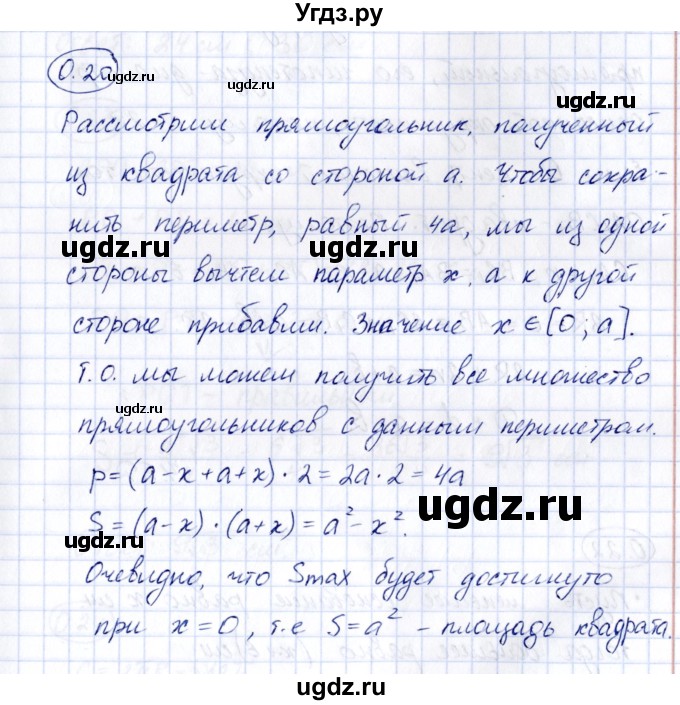 Угдз.ру
0.20
ugdz.ru
ugdz.ru
Рассмотрим прямоугольник, полученный
из квадрата со стороной a. Чтобы сохра-
нить периметр, равный 4a, мы из одной
ugdz.ru ugdz.ru
стороны вычтем параметр x, а к другой
стороне прибавим. Значение x ∈ [0; a].
Т.О. мы можем получить все множество
ugdz.ru
прямоугольников с данным периметром.
P = (a-x+a+x)·2 = 2a·2 = 4a
ugdz.ru
S = (a-x)·(a+x) = a² - x².
ugdz.ru
Очевидно, что Smax будет достигнуто
при x=0, т.е S=a² - площадь квадрата.
ugdz.ru
ugdz.ru